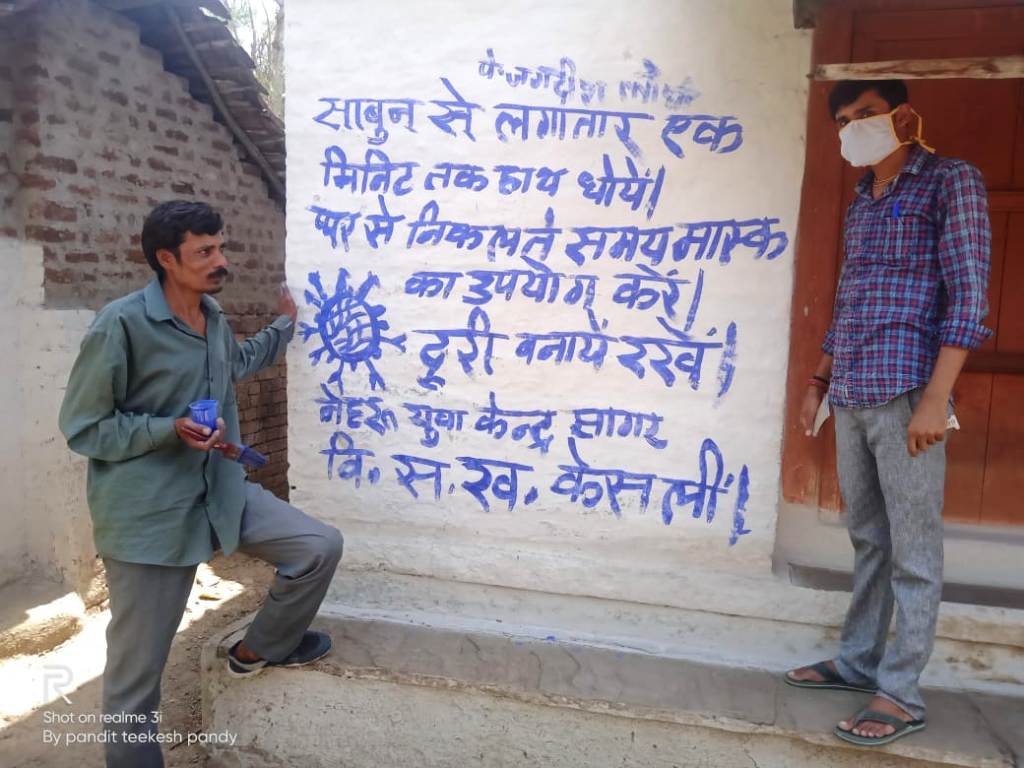 साबुन से लगातार एक
मिनिट तक हाथ धोयें।
घर से निकलते समय मास्क
का उपयोग करें।
दूरी बनायें रखें।
नेहरू युवा केन्द्र सागर
वि. स. ख. केसली।
Shot on realme 3i
By pandit teekesh pandy